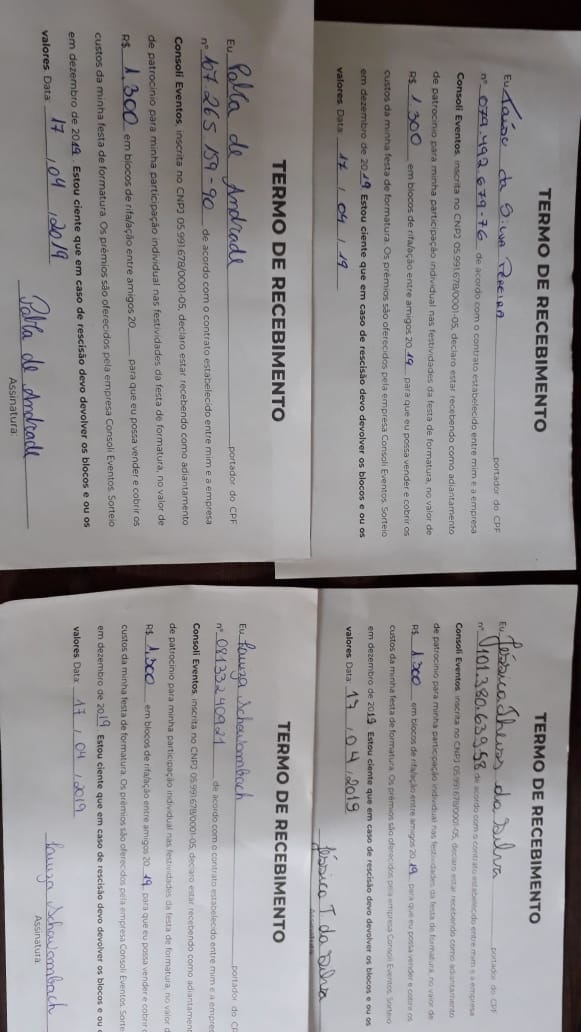 TERMO DE RECEBIMENTO
Eu, Taíse da Silva Pereira portador do CPF
nº 079.492.679-76 de acordo com o contrato estabelecido entre mim e a empresa
Consoli Eventos, inscrita no CNPJ 05.991.678/0001-05, declaro estar recebendo como adiantamento
de patrocinio para minha participação individual nas festividades da festa de formatura, no valor de
R$ 1.300 em blocos de rifa/ação entre amigos 20 19 para que eu possa vender e cobrir os
custos da minha festa de formatura. Os prêmios são oferecidos pela empresa Consoli Eventos. Sorteio
em dezembro de 2019. Estou ciente que em caso de rescisão devo devolver os blocos e ou os
valores. Data: 17 / 04 / 19
TERMO DE RECEBIMENTO
Eu, Polla de Andrade portador do CPF
nº 107.265.159-90 de acordo com o contrato estabelecido entre mim e a empresa
Consoli Eventos, inscrita no CNPJ 05.991.678/0001-05, declaro estar recebendo como adiantamento
de patrocinio para minha participação individual nas festividades da festa de formatura, no valor de
R$ 1.300 em blocos de rifa/ação entre amigos 20 para que eu possa vender e cobrir os
custos da minha festa de formatura. Os prêmios são oferecidos pela empresa Consoli Eventos. Sorteio
em dezembro de 2019. Estou ciente que em caso de rescisão devo devolver os blocos e ou os
valores. Data: 17 / 04 / 2019
Polla de Andrade
Assinatura:
TERMO DE RECEBIMENTO
Eu, Jéssica Theves da Silva portador do CPF
nº 101.380.639.58 de acordo com o contrato estabelecido entre mim e a empresa
Consoli Eventos, inscrita no CNPJ 05.991.678/0001-05, declaro estar recebendo como adiantamento
de patrocinio para minha participação individual nas festividades da festa de formatura, no valor de
R$ 1.300 em blocos de rifa/ação entre amigos 20 19 para que eu possa vender e cobrir os
custos da minha festa de formatura. Os prêmios são oferecidos pela empresa Consoli Eventos. Sorteio
em dezembro de 2019. Estou ciente que em caso de rescisão devo devolver os blocos e ou os
valores. Data: 17 / 04 / 2019
Jéssica T da Silva
TERMO DE RECEBIMENTO
Eu, portador do CPF
nº 08133240921 de acordo com o contrato estabelecido entre mim e a empresa
Consoli Eventos, inscrita no CNPJ 05.991.678/0001-05, declaro estar recebendo como adiantamen
de patrocinio para minha participação individual nas festividades da festa de formatura, no valor d
R$ 1.300 em blocos de rifa/ação entre amigos 20 19 para que eu possa vender e cobrir
custos da minha festa de formatura. Os prêmios são oferecidos pela empresa Consoli Eventos. Sorte
em dezembro de 2019. Estou ciente que em caso de rescisão devo devolver os blocos e ou
valores. Data: 17 / 04 / 2019
Assinatura: